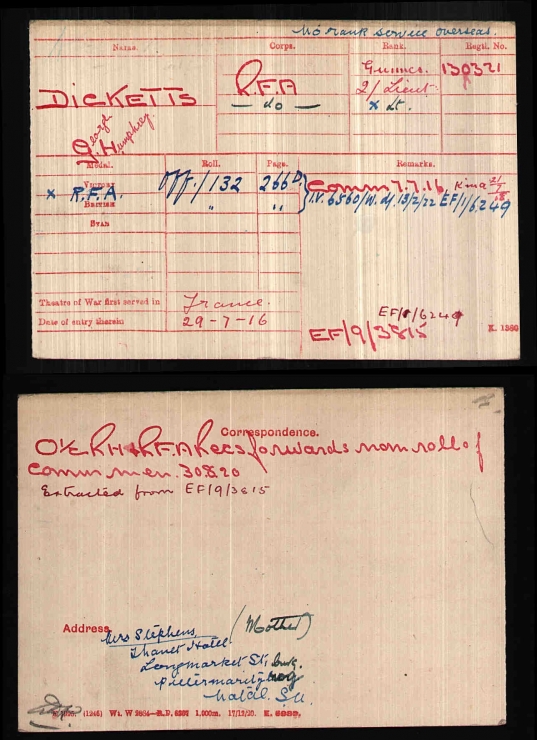 No rank service overseas.
Name. Corps. Rank. Regtl. No.
DICKETTS R.F.A Gunner. 130321
— do — 2/Lieut.
x Lt.
George Humphrey
G.H.
Medal. Roll. Page. Remarks.
Victory Off/132 266D. Comm 7.7.16. K in a 21/7/18
x R.F.A. I.V. 6560/W. d/. 13/2/22 EF/1/6249
British " "
Star
Theatre of War first served in France.
Date of entry therein 29-7-16
EF/1/6249
EF/9/3815
K. 1380
Correspondence.
O i/c RH & RFA Recs forwards nom roll of
Comm. men. 30.8.20
Extracted from EF/9/3815
Address. Mrs Stephens (Mother)
Thanet Hall
Longmarket St.
Pietermaritzburg
Natal. S.A.
(1246) Wt. W 2884—R.P. 6397 1,000m. 17/12/20. K. 6089.